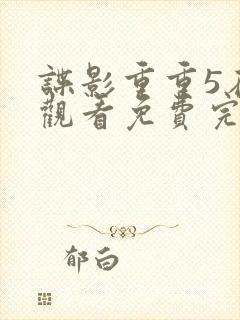 諜影重重5在
觀看免費完
郁白